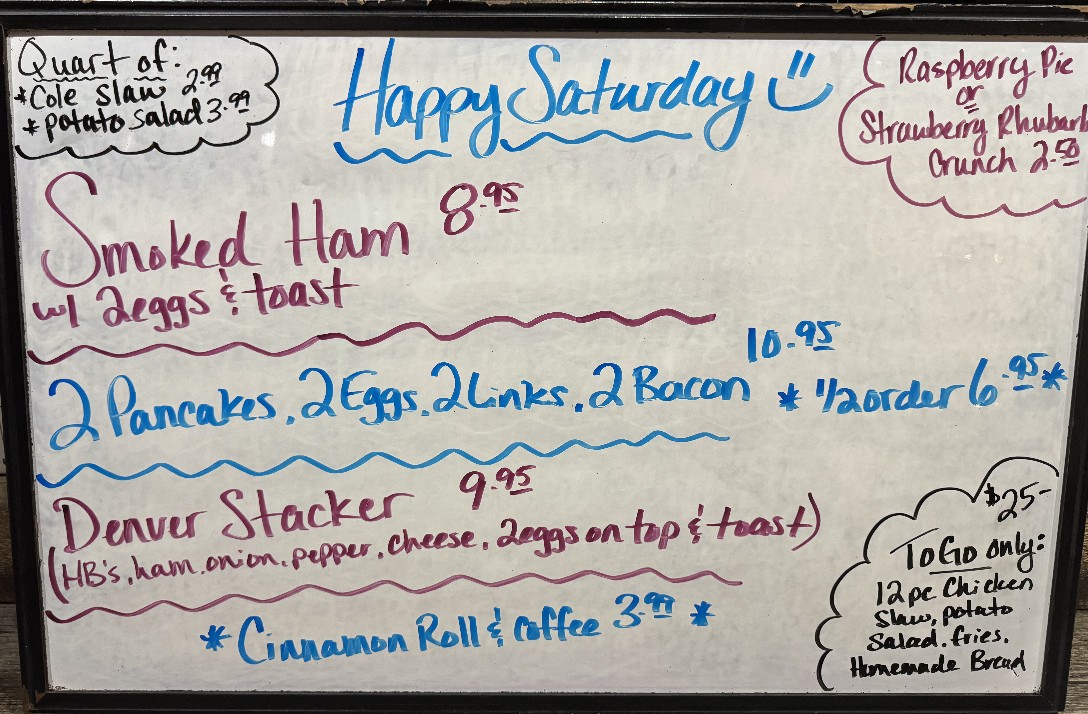 Quart of:
*Cole Slaw 2.99
*potato salad 3.99
Happy Saturday
Raspberry Pie
or
Strawberry Rhubarb
Crunch 2.50
Smoked Ham 8.95
w/ 2eggs & toast
2 Pancakes, 2 Eggs, 2 Links, 2 Bacon 10.95
* 1/2 order 6.95 *
Denver Stacker 9.95
(HB's, ham, onion, pepper, cheese, 2eggs on top & toast)
* Cinnamon Roll & Coffee 3.99 *
$25-
ToGo only:
12pc Chicken
Slaw, potato
Salad, fries,
Homemade Bread